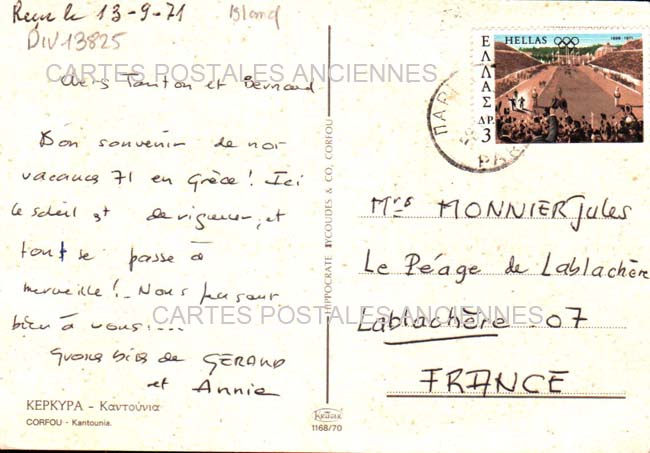 Reçu le 13-9-71
Bland
DIV13825
CARTES POSTALES ANCIENNES
chers Tonton et Bernard
Bon souvenir de nos
vacances 71 en Grèce! Ici
le soleil est de rigueur, et
tout se passe à
merveille! Nous pensons
bien à vous....
Gros bises de GERARD
et Annie
ΚΕΡΚΥΡΑ - Καντούνια
CORFOU - Kantounia.
HIPPOCRATE LYCOUDES & CO, CORFOU
1168/70
HELLAS
1896-1971
ΕΛΛΑΣ
ΔΡ.
3
ΠΑΡ
Mrs MONNIER Jules
Le Péage de Lablachère
Lablachère - 07
CARTES POSTALES ANCIENNES
FRANCE